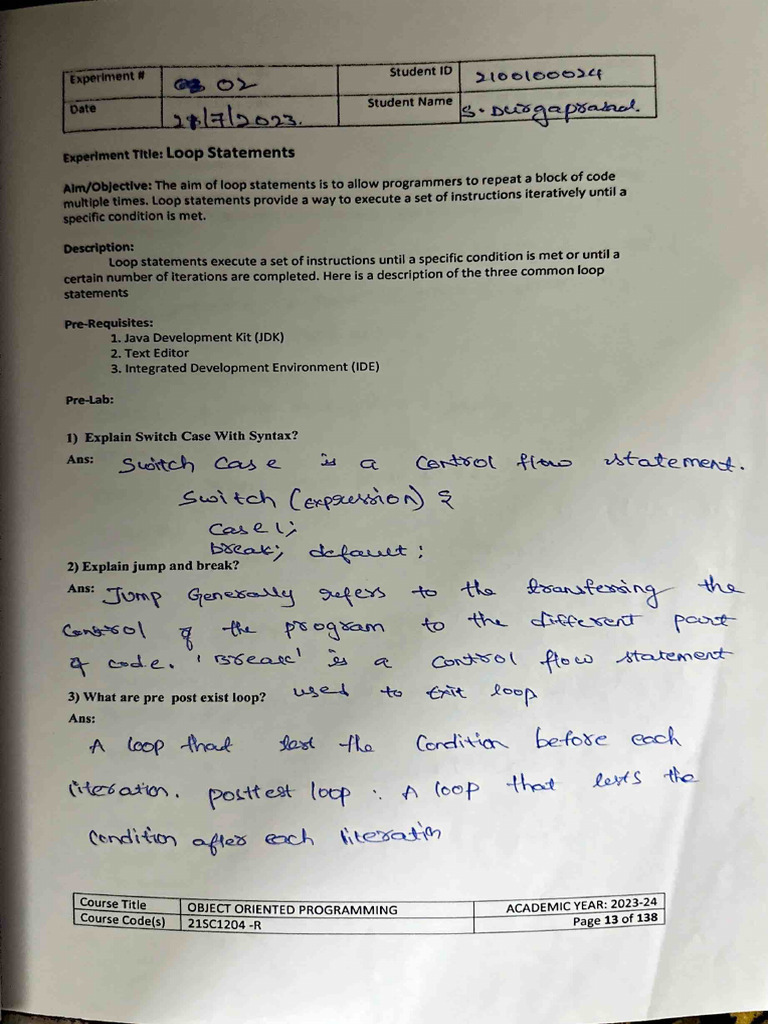 Experiment # 02 Student ID 2100100024
Date 27/7/2023. Student Name S. Durgaprasad.
Experiment Title: Loop Statements
Aim/Objective: The aim of loop statements is to allow programmers to repeat a block of code
multiple times. Loop statements provide a way to execute a set of instructions iteratively until a
specific condition is met.
Description:
Loop statements execute a set of instructions until a specific condition is met or until a
certain number of iterations are completed. Here is a description of the three common loop
statements
Pre-Requisites:
1. Java Development Kit (JDK)
2. Text Editor
3. Integrated Development Environment (IDE)
Pre-Lab:
1) Explain Switch Case With Syntax?
Ans: Switch Case is a Control flow statement.
Switch (expression) {
Case 1;
break; default:
2) Explain jump and break?
Ans: Jump Generally refers to the transferring the
Control of the program to the different part
of code. 'Break' is a control flow statement
3) What are pre post exist loop? used to exit loop
Ans:
A loop that test the Condition before each
iteration. posttest loop : A loop that tests the
Condition after each iteration
Course Title OBJECT ORIENTED PROGRAMMING ACADEMIC YEAR: 2023-24
Course Code(s) 21SC1204 -R Page 13 of 138